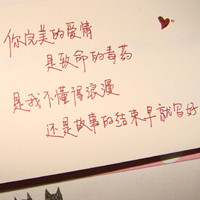 你完美的爱情
是致命的毒药
是我不懂得浪漫
还是故事的结束早就写好